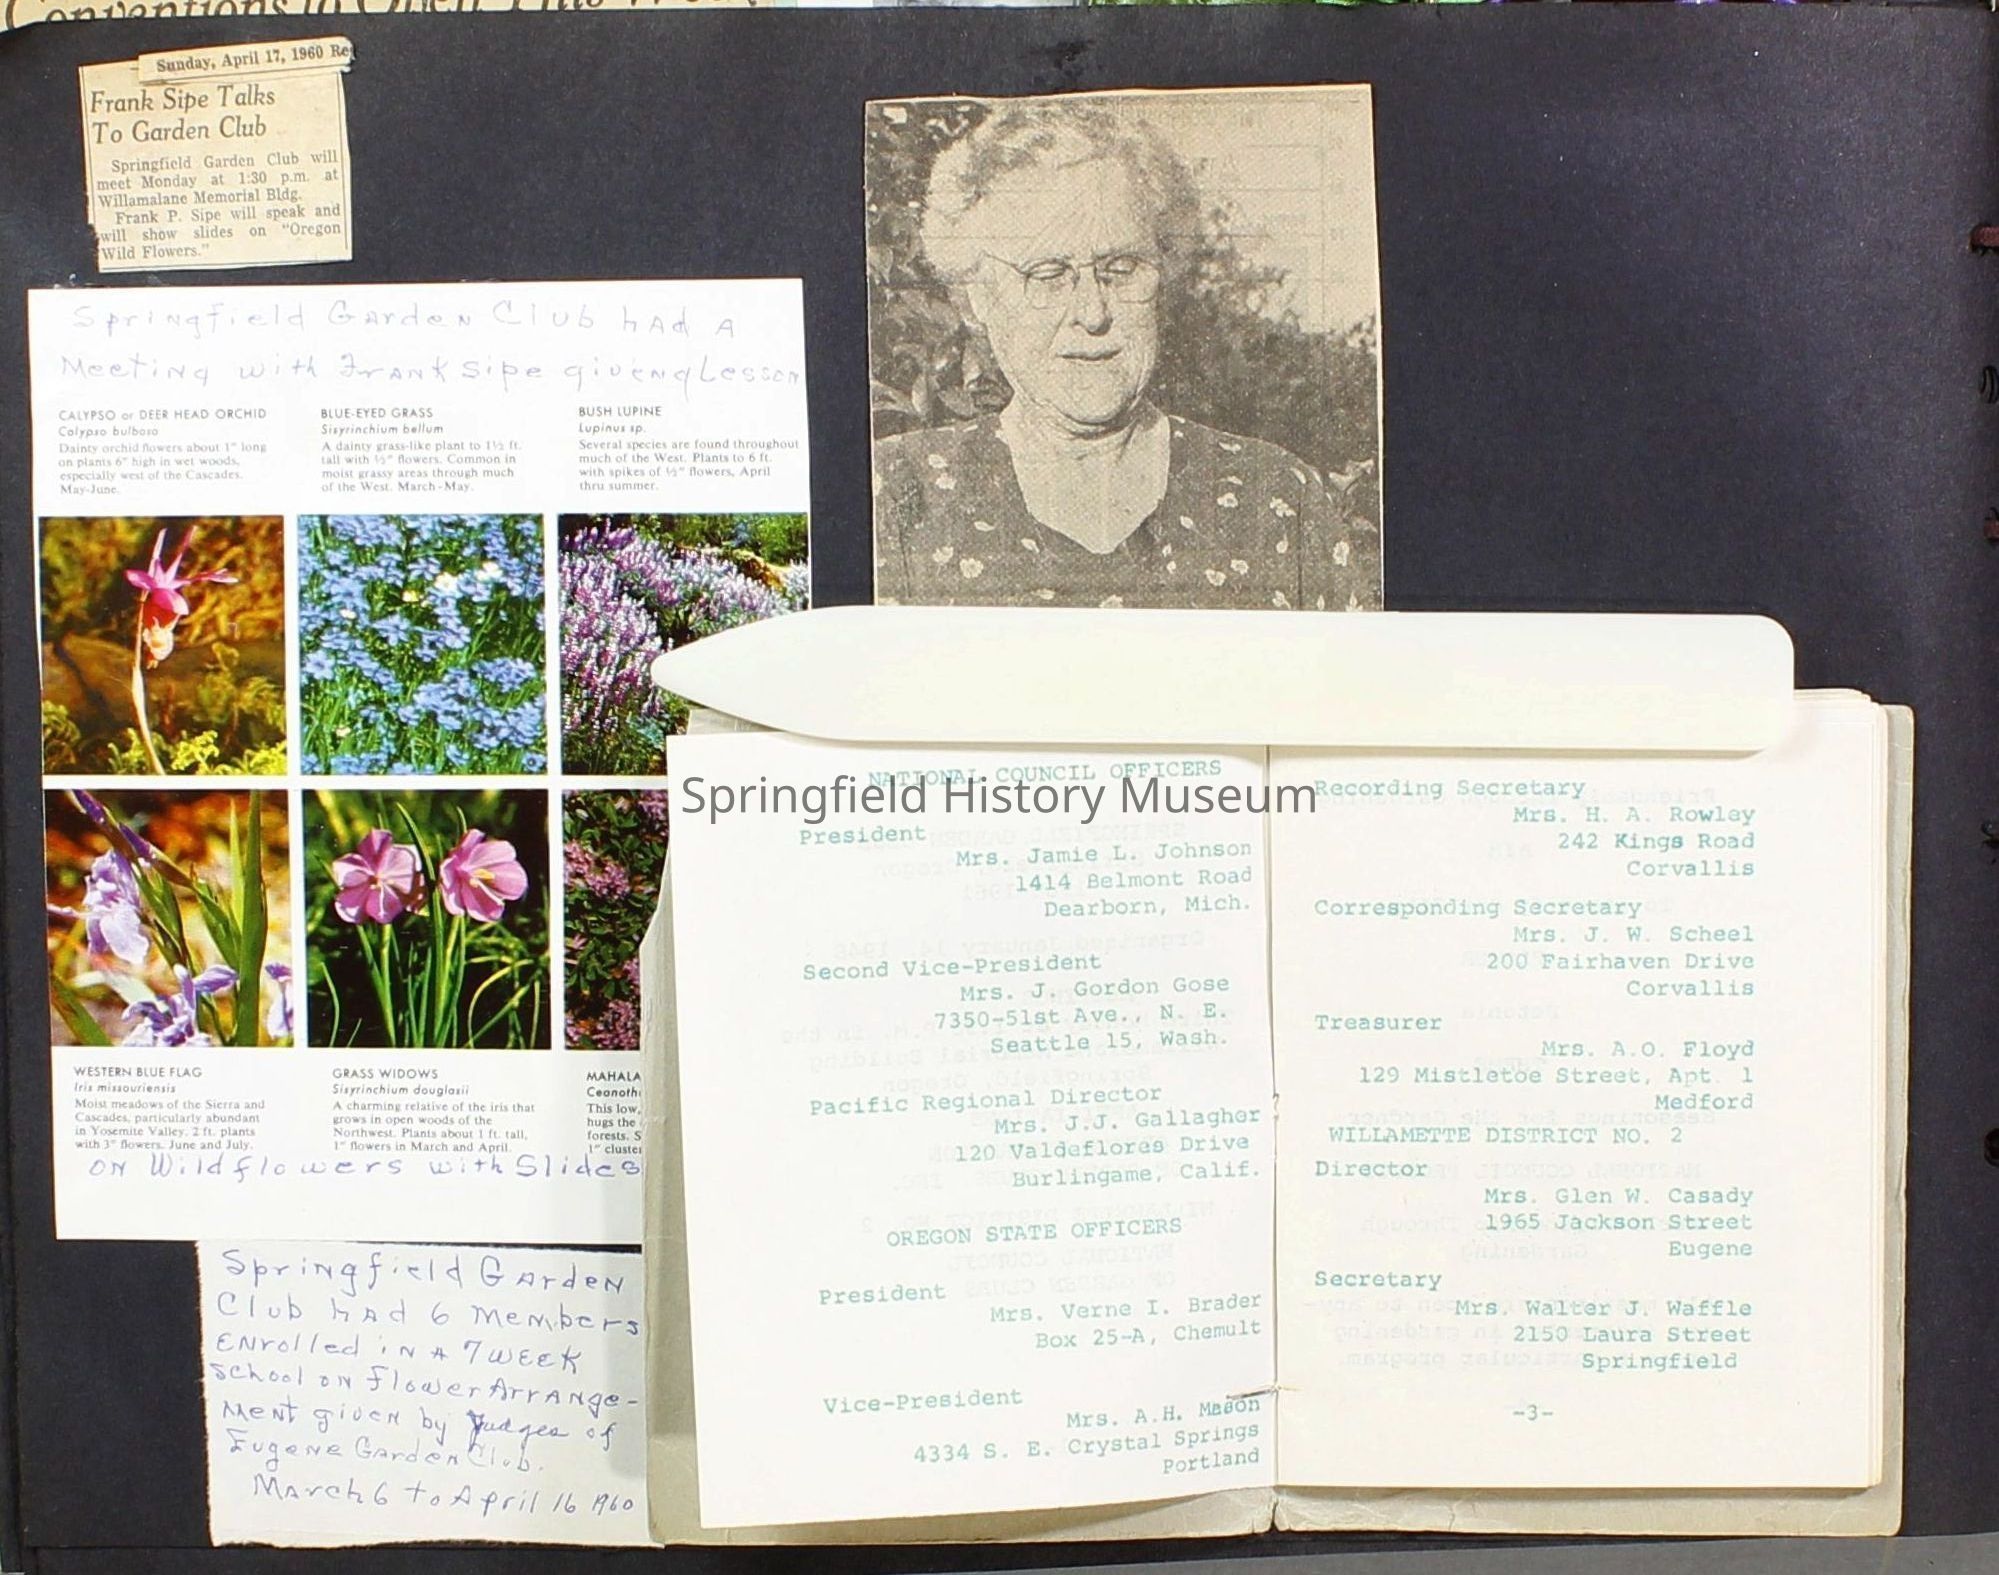 Sunday, April 17, 1960 Re
Frank Sipe Talks
To Garden Club
Springfield Garden Club will
meet Monday at 1:30 p.m. at
Willamalane Memorial Bldg.
Frank P. Sipe will speak and
will show slides on "Oregon
Wild Flowers."
Springfield Garden Club had a
Meeting with Frank Sipe giveng Lesson
CALYPSO or DEER HEAD ORCHID
Calypso bulbosa
Dainty orchid flowers about 1" long
on plants 6" high in wet woods,
especially west of the Cascades.
May-June.
BLUE-EYED GRASS
Sisyrinchium bellum
A dainty grass-like plant to 1½ ft.
tall with ½" flowers. Common in
moist grassy areas through much
of the West. March-May.
BUSH LUPINE
Lupinus sp.
Several species are found throughout
much of the West. Plants to 6 ft.
with spikes of ½" flowers, April
thru summer.
WESTERN BLUE FLAG
Iris missouriensis
Moist meadows of the Sierra and
Cascades, particularly abundant
in Yosemite Valley. 2 ft. plants
with 3" flowers. June and July.
GRASS WIDOWS
Sisyrinchium douglasii
A charming relative of the iris that
grows in open woods of the
Northwest. Plants about 1 ft. tall,
1" flowers in March and April.
MAHALA
Ceanoth
This low,
hugs the
forests. S
1" cluste
on Wildflowers with Slides
Springfield Garden
Club had 6 Members
Enrolled in a 7 week
School on Flower Arrange-
ment given by Judges of
Eugene Garden Club.
March 6 to April 16 1960
Springfield History Museum
NATIONAL COUNCIL OFFICERS
President
Mrs. Jamie L. Johnson
1414 Belmont Road
Dearborn, Mich.
Second Vice-President
Mrs. J. Gordon Gose
7350-51st Ave., N. E.
Seattle 15, Wash.
Pacific Regional Director
Mrs. J.J. Gallagher
120 Valdeflores Drive
Burlingame, Calif.
OREGON STATE OFFICERS
President
Mrs. Verne I. Brader
Box 25-A, Chemult
Vice-President
Mrs. A.H. Mason
4334 S. E. Crystal Springs
Portland
Recording Secretary
Mrs. H. A. Rowley
242 Kings Road
Corvallis
Corresponding Secretary
Mrs. J. W. Scheel
200 Fairhaven Drive
Corvallis
Treasurer
Mrs. A.O. Floyd
129 Mistletoe Street, Apt. 1
Medford
WILLAMETTE DISTRICT NO. 2
Director
Mrs. Glen W. Casady
1965 Jackson Street
Eugene
Secretary
Mrs. Walter J. Waffle
2150 Laura Street
Springfield
-3-